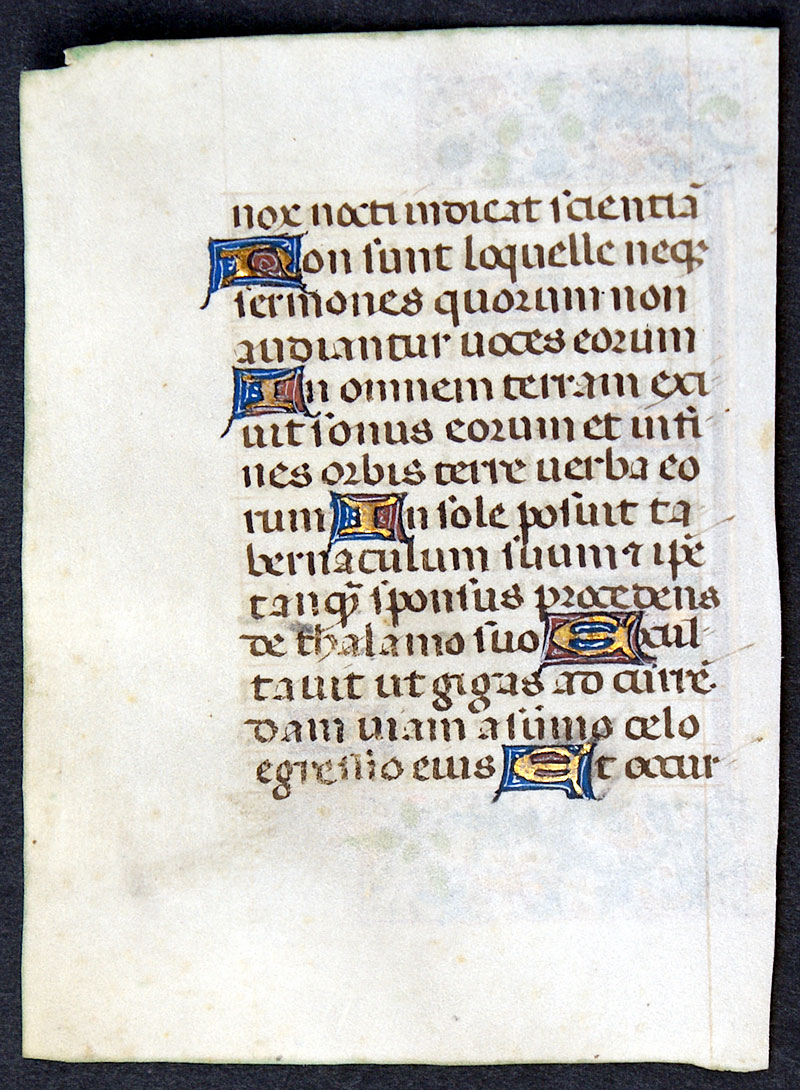 nox nocti indicat scientiā
Non sunt loquelle neqꝫ
sermones quorum non
audiantur uoces eorum
In omnem terram exi-
uit sonus eorum et in fi-
nes orbis terre uerba eo
rum In sole posuit ta-
bernaculum suum ⁊ ip̄e
tanqȝ̄ sponsus procedens
de thalamo suo Excul-
tauit ut gigas ad currē-
dam uiam a sūmo celo
egressio eius Et occur-